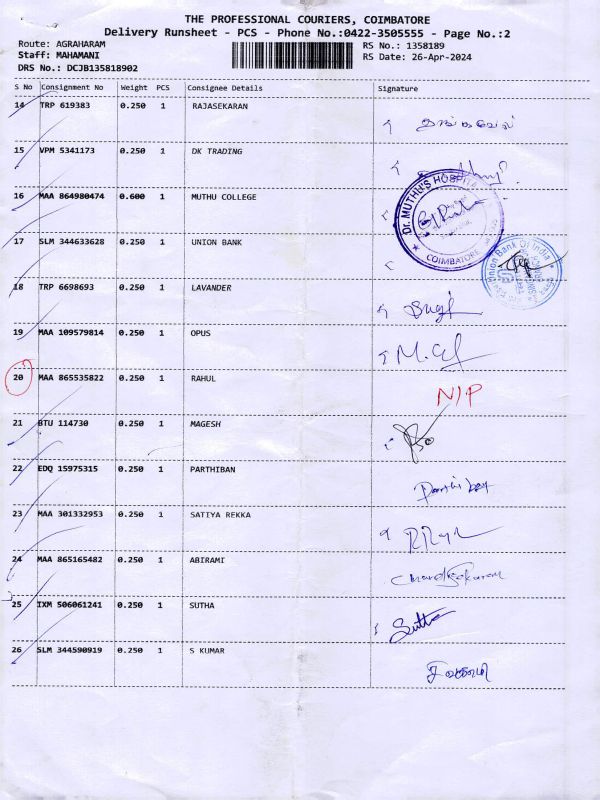 THE PROFESSIONAL COURIERS, COIMBATORE
Delivery Runsheet - PCS - Phone No.:0422-3505555 - Page No.:2
Route: AGRAHARAM RS No.: 1358189
Staff: MAHAMANI RS Date: 26-Apr-2024
DRS No.: DCJB135818902
S No Consignment No Weight PCS Consignee Details Signature
14 TRP 619383 0.250 1 RAJASEKARAN
15 VPM 5341173 0.250 1 DK TRADING
16 MAA 864980474 0.600 1 MUTHU COLLEGE Dr. MUTHU'S HOSPITAL COIMBATORE
17 SLM 344633628 0.250 1 UNION BANK Union Bank Of India
18 TRP 6698693 0.250 1 LAVANDER
19 MAA 109579814 0.250 1 OPUS
20 MAA 865535822 0.250 1 RAHUL N/P
21 BTU 114730 0.250 1 MAGESH
22 EDQ 15975315 0.250 1 PARTHIBAN
23 MAA 301332953 0.250 1 SATIYA REKKA
24 MAA 865165482 0.250 1 ABIRAMI
25 IXM 506061241 0.250 1 SUTHA Sutha
26 SLM 344590919 0.250 1 S KUMAR